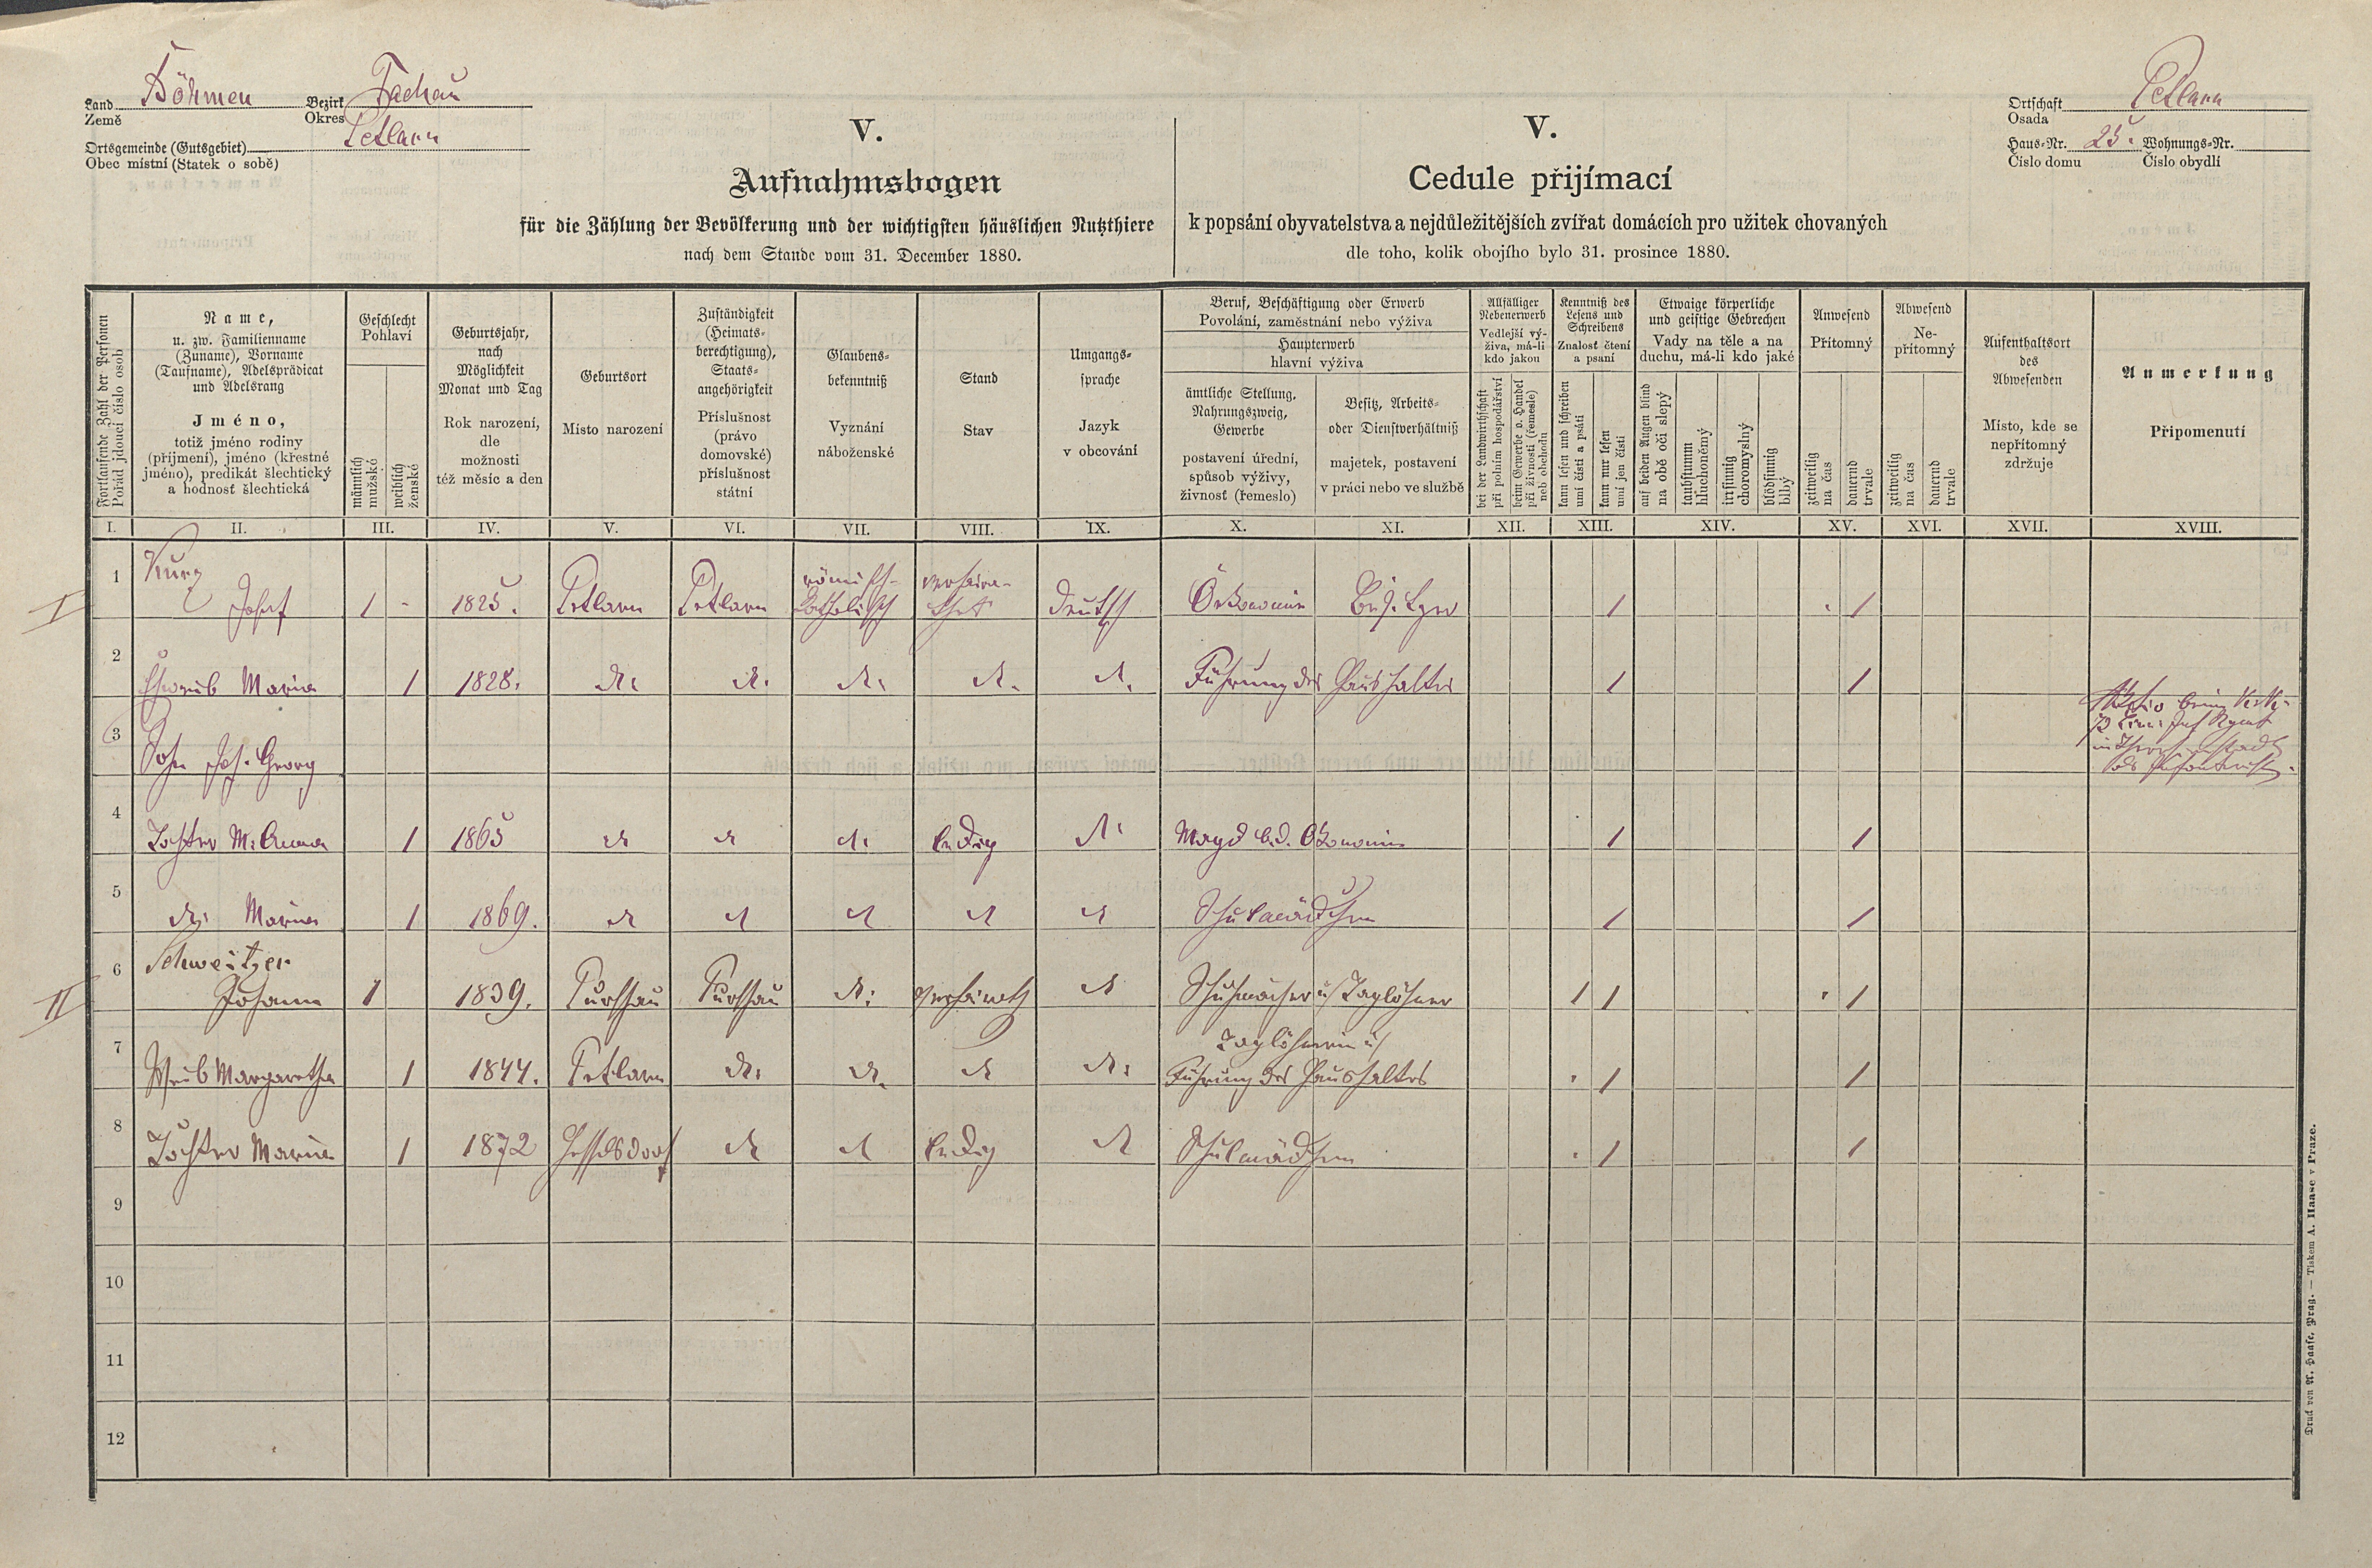 Land Böhmen Bezirk Tachau
Země Okres
Ortsgemeinde (Gutsgebiet) Petlarn
Obec místní (Statek o sobě)
Ortschaft Petlarn
Osada
Haus-Nr. 25. Wohnungs-Nr.
Číslo domu Číslo obydlí
V.
Aufnahmsbogen
für die Zählung der Bevölkerung und der wichtigsten häuslichen Nutzthiere
nach dem Stande vom 31. December 1880.
V.
Cedule přijímací
k popsání obyvatelstva a nejdůležitějších zvířat domácích pro užitek chovaných
dle toho, kolik obojího bylo 31. prosince 1880.
Fortlaufende Zahl der Personen
Pořád jdoucí číslo osob
Name,
u. zw. Familienname
(Zuname), Vorname
(Taufname), Adelsprädicat
und Adelsrang
Jméno,
totiž jméno rodiny
(příjmení), jméno (křestné
jméno), predikát šlechtický
a hodnosť šlechtická
Geschlecht
Pohlaví
männlich
mužské
weiblich
ženské
Geburtsjahr,
nach
Möglichkeit
Monat und Tag
Rok narození,
dle
možnosti
též měsíc a den
Geburtsort
Místo narození
Zuständigkeit
(Heimats-
berechtigung),
Staats-
angehörigkeit
Příslušnost
(právo
domovské)
příslušnost
státní
Glaubens-
bekenntniß
Vyznání
náboženské
Stand
Stav
Umgangs-
sprache
Jazyk
v obcování
Beruf, Beschäftigung oder Erwerb
Povolání, zaměstnání nebo výživa
Haupterwerb
hlavní výživa
ämtliche Stellung,
Nahrungszweig,
Gewerbe
postavení úřední,
spůsob výživy,
živnosť (řemeslo)
Besitz, Arbeits-
oder Dienstverhältniß
majetek, postavení
v práci nebo ve službě
Allfälliger
Nebenerwerb
Vedlejší vý-
živa, má-li
kdo jakou
bei der Landwirthschaft
při polním hospodářství
beim Gewerbe o. Handel
při živnosti (řemesle)
neb obchodu
Kenntniß des
Lesens und
Schreibens
Znalosť čtení
a psaní
kann lesen und schreiben
umí čísti a psáti
kann nur lesen
umí jen čísti
Etwaige körperliche
und geistige Gebrechen
Vady na těle a na
duchu, má-li kdo jaké
auf beiden Augen blind
na obě oči slepý
taubstumm
hluchoněmý
irrsinnig
choromyslný
blödsinnig
blbý
Anwesend
Přítomný
zeitweilig
na čas
dauernd
trvale
Abwesend
Ne-
přítomný
zeitweilig
na čas
dauernd
trvale
Aufenthaltsort
des
Abwesenden
Místo, kde se
nepřítomný
zdržuje
Anmerkung
Připomenutí
I. II. III. IV. V. VI. VII. VIII. IX. X. XI. XII. XIII. XIV. XV. XVI. XVII. XVIII.
I 1 Kurz
Josef 1 - 1825. Petlarn Petlarn römisch-katholisch deutsch Ökonomie Besitzer 1 1
2 Eheweib Maria 1 1828. dt. dt. dt. dt. dt. Führung des Haushaltes 1 1
3 Sohn Jos. Georg
4 Tochter M. Anna 1 1865 dt dt dt. ledig dt. Magd b. d. Ökonomie 1 1
5 dt. Maria 1 1869. dt dt dt dt dt Schulmädchen 1 1
II 6 Schweitzer
Johann 1 1839. Purschau Purschau dt. verheirath dt Schuhmacher u Taglöhner 1 1 1
7 Weib Margaretha 1 1844. Petlarn dt. dt. dt dt. Taglöhnerin u
Führung des Haushaltes 1 1
8 Tochter Maria 1 1872 Hesselsdorf dt dt ledig dt Schulmädchen 1 1
9
10
11
12
Druck von A. Haase, Prag. — Tiskem A. Haase v Praze.